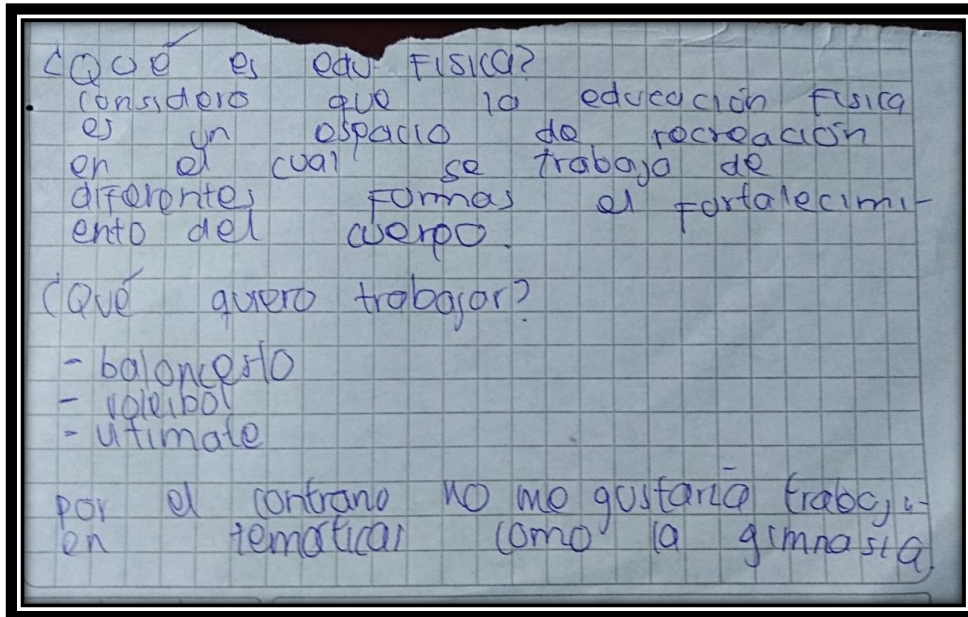 ¿Qué es edu- Fisica?
considero que la educación Fisica
es un espacio de recreación
en el cual se trabaja de
diferentes Formas el Fortalecimi-
ento del cuerpo.
¿Qué quiero trabajar?
- baloncesto
- voleibol
- utimate
por el contrario no me gustaria
en tematicas como la gimnasia.